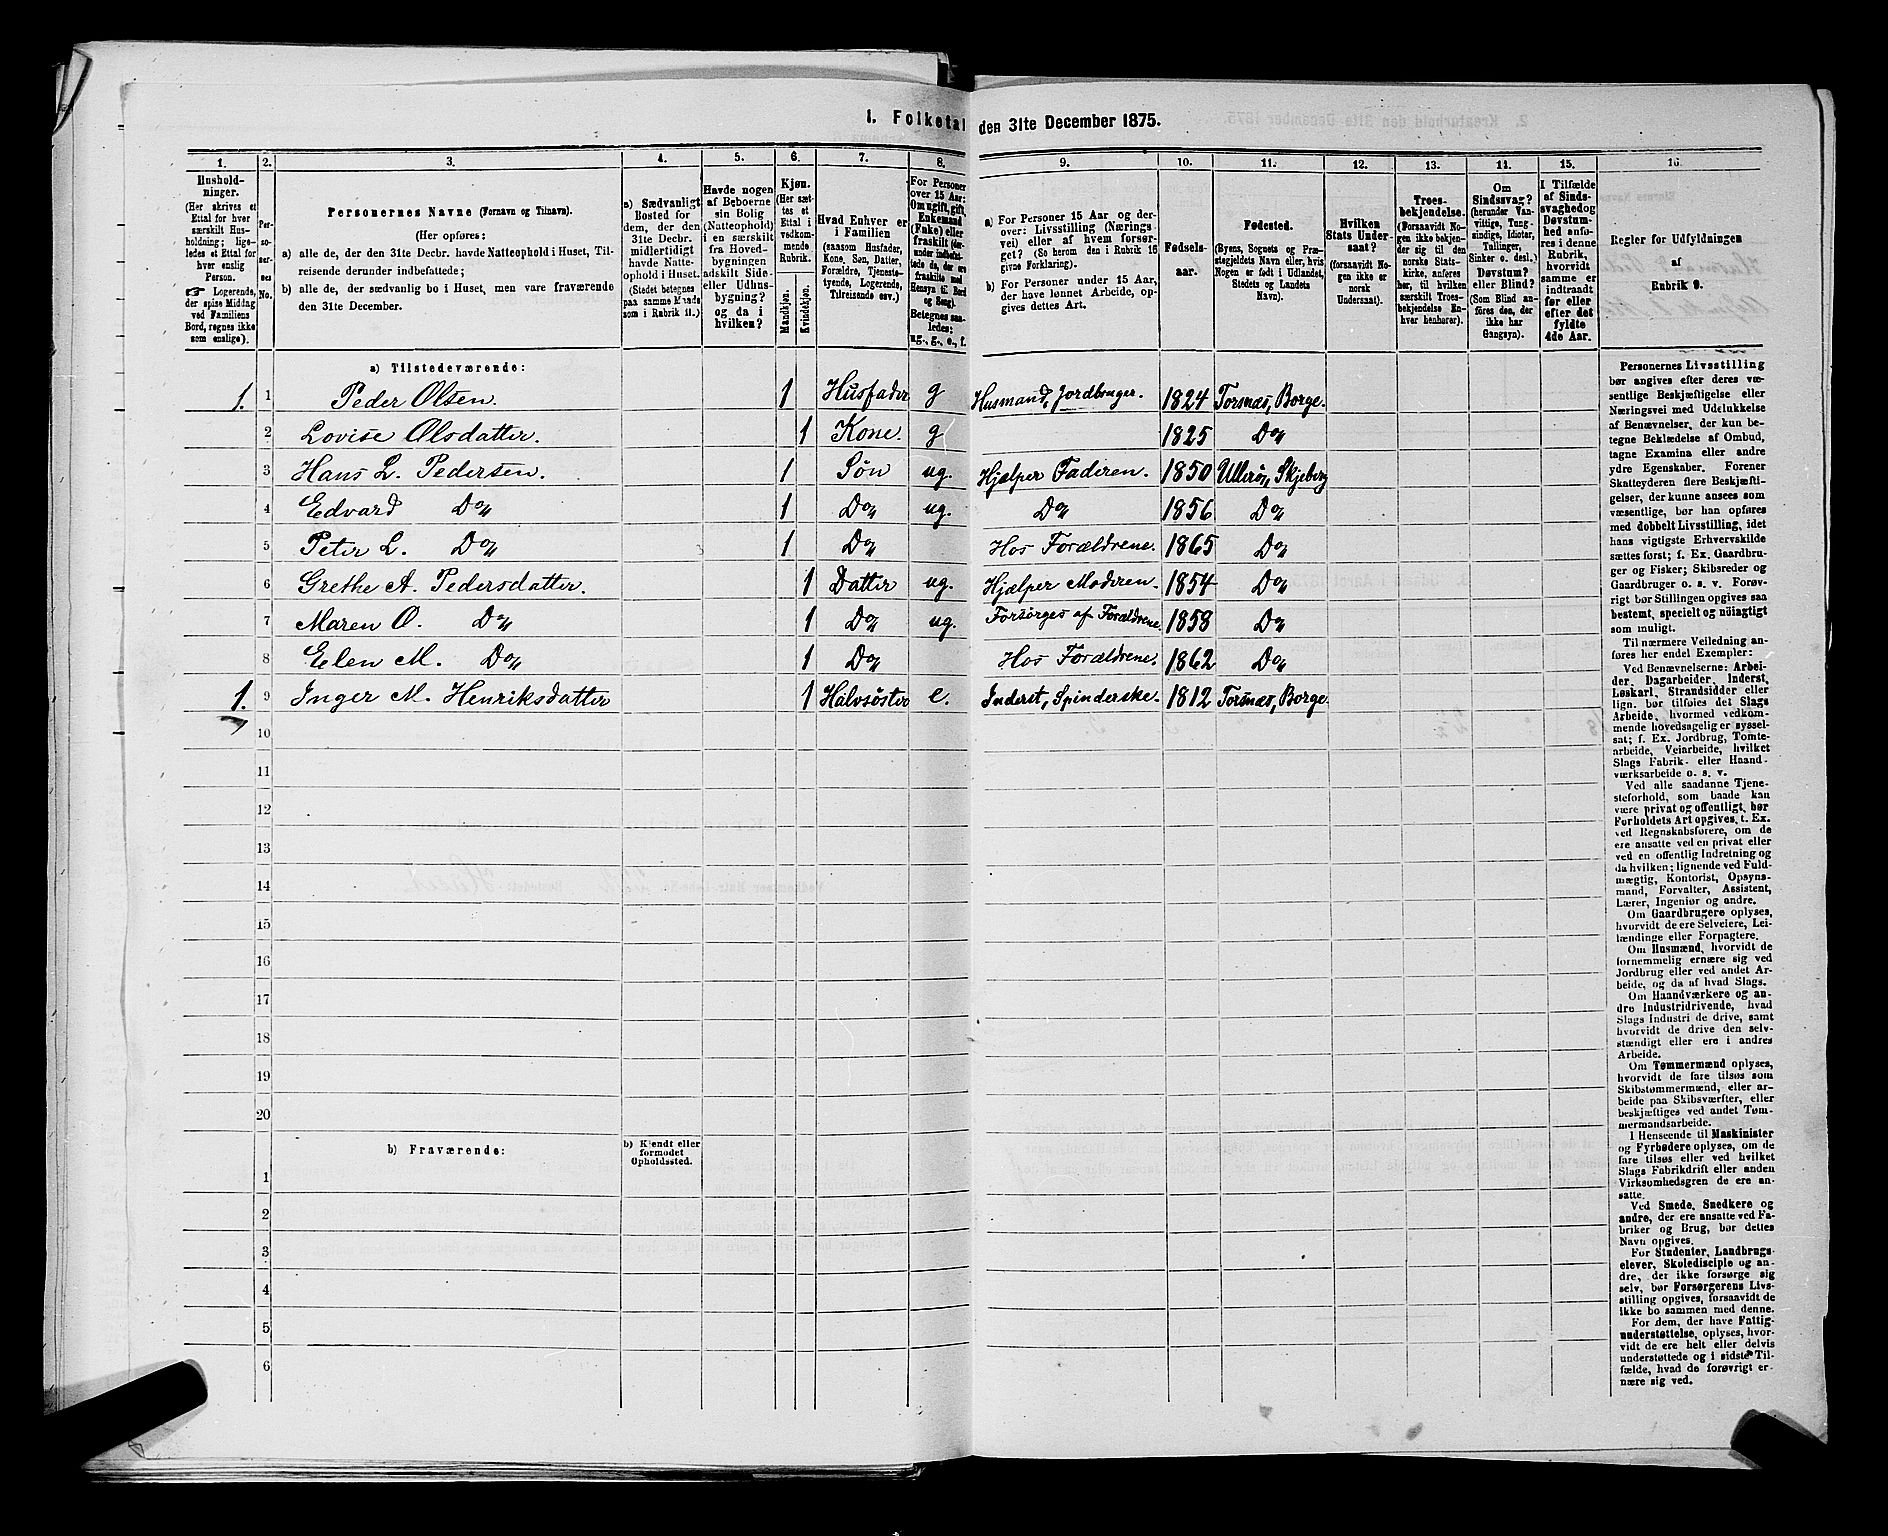 1. Folketal den 31te December 1875.
1. 2. 3. 4. 5. 6. 7. 8. 9. 10. 11. 12. 13. 14. 15. 16.
Husholdninger.
(Her skrives et
Ettal for hver
særskilt Husholdning; ligeledes et Ettal for
hver enslig
Person.
☞ Logerende,
der spise Middag
ved Familiens
Bord, regnes ikke
som enslige).
Personernes No.
Personernes Navne (Fornavn og Tilnavn).
(Her opføres:
a) alle de, der den 31te Decbr. havde Natteophold i Huset, Tilreisende derunder indbefattede;
b) alle de, der sædvanlig bo i Huset, men vare fraværende
den 31te December.
a) Sædvanligt
Bosted for
dem, der den
31te Decbr.
midlertidigt
havde Natteophold i Huset.
(Stedet betegnes
paa samme Maade
som i Rubrik 11.)
Havde nogen
af Beboerne
sin Bolig
(Natteophold)
i en særskilt
fra Hovedbygningen
adskilt Side-
eller Udhusbygning?
og da i
hvilken?
Kjøn.
(Her sættes et
Ettal i
vedkommende
Rubrik.
Mandkjøn.
Kvindekjøn.
Hvad Enhver er
i Familien
(saasom Husfader,
Kone, Søn, Datter,
Forældre, Tjenestetyende, Logerende,
Tilreisende osv.)
For Personer
over 15 Aar:
Om ugift, gift,
Enkemand
(Enke) eller
fraskilt (derunder indbefattede de, der ere
fraskilte med
Hensyn til Bord
og Seng).
Betegnes saaledes:
ug., g., e., f.
a) For Personer 15 Aar og derover: Livsstilling (Næringsvei) eller af hvem forsørget? (Se herom den i Rubrik 16
givne Forklaring).
b) For Personer under 15 Aar,
der have lønnet Arbeide, opgives dettes Art.
Fødselsaar.
Fødested.
(Byens, Sognets og Præstegjeldets Navn eller, hvis
Nogen er født i Udlandet,
Stedets og Landets
Navn).
Hvilken
Stats Undersaat?
(forsaavidt Nogen ikke er
norsk
Undersaat).
Troesbekjendelse.
(Forsaavidt Nogen ikke bekjender sig til den
norske Statskirke, anføres
her, til hvilken
særskilt Troesbekjendelse Enhver henhører).
Om
Sindssvag?
(herunder Vanvittige, Tungsindige, Idioter,
Tullinger,
Sinker o. desl.)
Døvstum?
eller Blind?
(Som Blind anføres den, der
ikke har
Gangsyn).
I Tilfælde
af Sindssvaghed og
Døvstumhed anføres i denne
Rubrik,
hvorvidt
samme er
indtraadt
før eller
efter det
fyldte
4de Aar.
Regler for Udfyldningen
af
Rubrik 9.
a) Tilstedeværende:
1. 1 Peder Olsen. 1 Husfader g Husmand, Jordbruger. 1824 Torsnæs, Borge.
2 Lovise Olsdatter. 1 Kone. g 1825 Do
3 Hans L. Pedersen. 1 Søn ug. Hjælper Faderen. 1850 Ullerøn, Skjeberg
4 Edvard Do 1 Do ug. Do 1856 Do
5 Peter L. Do 1 Do Hos Forældrene. 1865 Do
6 Grethe A. Pedersdatter. 1 Datter ug. Hjælper Moderen. 1854 Do
7 Maren O. Do 1 Do ug. Forsørges af Forældrene. 1858 Do
8 Elen M. Do 1 Do Hos Forældrene. 1862 Do
1. 9 Inger M. Henriksdatter 1 Halvsøster e. Inderst, Spinderske. 1812 Torsnæs, Borge.
10
11
12
13
14
15
16
17
18
19
20
b) Fraværende:
b) Kjendt eller
formodet
Opholdssted.
1
2
3
4
5
6
Personernes Livsstilling
bør angives efter deres væsentlige Beskjæftigelse eller
Næringsvei med Udelukkelse
af Benævnelser, der kun betegne Beklædelse af Ombud,
tagne Examina eller andre
ydre Egenskaber. Forener
Skatteyderen flere Beskjæftigelser, der kunne ansees som
væsentlige, bør han opføres
med dobbelt Livsstilling, idet
hans vigtigste Erhvervskilde
sættes først; f. Ex. Gaardbruger og Fisker; Skibsreder og
Gaardbruger o. s. v. Forøvrigt bør Stillingen opgives saa
bestemt, specielt og nøiagtigt
som muligt.
Til nærmere Veiledning anføres her endel Exempler:
Ved Benævnelserne: Arbeider, Dagarbeider, Inderst,
Løskarl, Strandsidder eller
lign. bør tilføies det Slags
Arbeide, hvormed vedkommende hovedsagelig er sysselsat; f. Ex. Jordbrug, Tomtearbeide, Veiarbeide, hvilket
Slags Fabrik- eller Haandværksarbeide o. s. v.
Ved alle saadanne Tjenesteforhold, som baade kan
være privat og offentligt, bør
Forholdets Art opgives, t. Ex.
ved Regnskabsførere, om de
ere ansatte ved en privat eller
ved en offentlig Indretning og
da hvilken; lignende ved Fuldmægtig, Kontorist, Opsynsmand, Forvalter, Assistent,
Lærer, Ingeniør og andre.
Om Gaardbrugere oplyses,
hvorvidt de ere Selveiere, Leilændinge eller Forpagtere.
Om Husmænd, hvorvidt de
fornemmelig ernære sig ved
Jordbrug eller ved andet Arbeide, og da af hvad Slags.
Om Haandværkere og andre Industridrivende, hvad
Slags Industri de drive, samt
hvorvidt de drive den selvstændigt eller ere i andres
Arbeide.
Om Tømmermænd oplyses,
hvorvidt de fare tilsøs som
Skibstømmermænd, eller arbeide paa Skibsværfter, eller
beskjæftiges ved andet Tømmermandsarbeide.
I Henseende til Maskinister
og Fyrbødere oplyses, om de
fare tilsøs eller ved hvilket
Slags Fabrikdrift eller anden
Virksomhedsgren de ere ansatte.
Ved Smede, Snedkere og
andre, der ere ansatte ved Fabriker og Brug, bør dettes
Navn opgives.
For Studenter, Landbrugselever, Skoledisciple og andre, der ikke forsørge sig
selv, bør Forsørgerens Livsstilling opgives, forsaavidt de
ikke bo sammen med denne.
For dem, der have Fattigunderstøttelse, oplyses, hvorvidt de ere helt eller delvis
understøttede og i sidste Tilfælde, hvad de forøvrigt ernære sig ved.